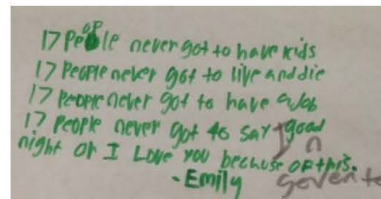 17 People never got to have kids
17 People never got to live and die
17 people never got to have a Job
17 people never got to say good
night or I Love you because of this.
-Emily